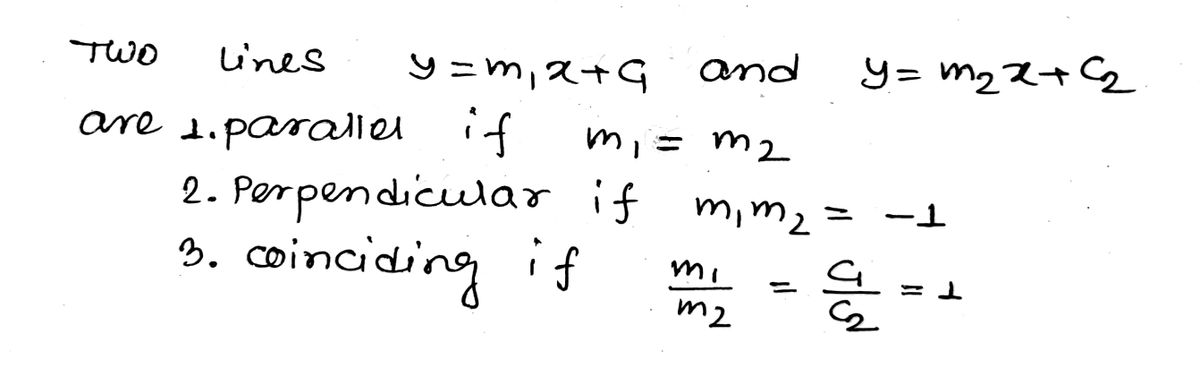 Two lines y = m₁x + c₁ and y = m₂x + c₂
are 1. parallel if m₁ = m₂
2. Perpendicular if m₁m₂ = -1
3. coinciding if m₁/m₂ = c₁/c₂ = 1